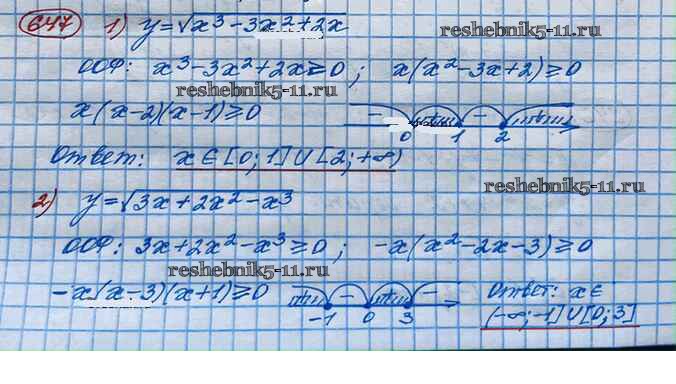 647 1) y=√x³-3x²+2x
reshebnik5-11.ru
ООФ: x³-3x²+2x≥0; x(x²-3x+2)≥0
reshebnik5-11.ru
x(x-2)(x-1)≥0 - + - +
0 1 2
Ответ: x∈[0;1]∪[2;+∞)
reshebnik5-11.ru
2) y=√3x+2x²-x³
reshebnik5-11.ru
ООФ: 3x+2x²-x³≥0; -x(x²-2x-3)≥0
reshebnik5-11.ru
-x(x-3)(x+1)≥0 + - + - Ответ: x∈
-1 0 3 (-∞;-1]∪[0;3]